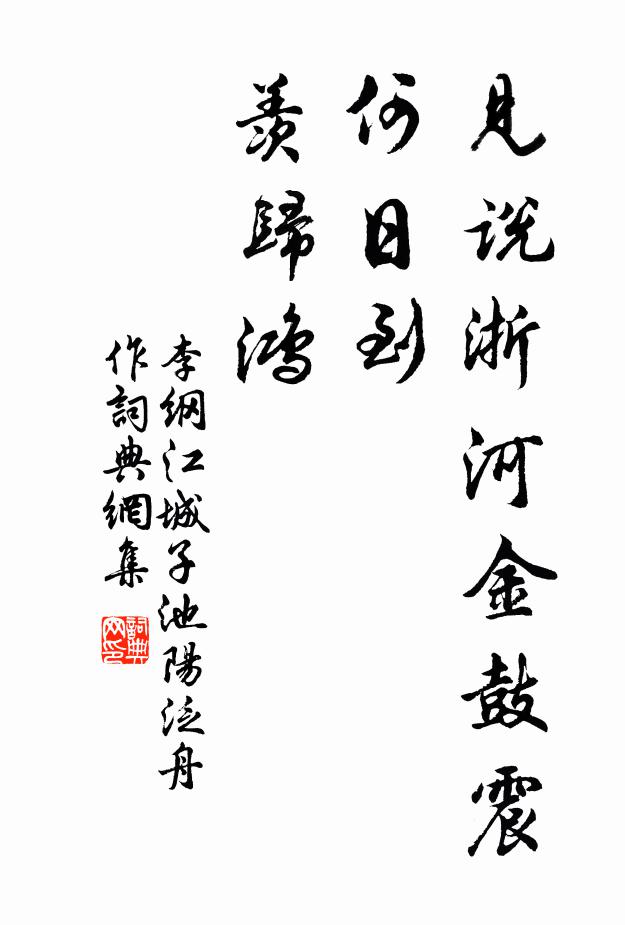 見説浙河金鼓震
何日到
羨歸鴻
李綱江城子池陽泛舟
作詞典網集
詞典网印